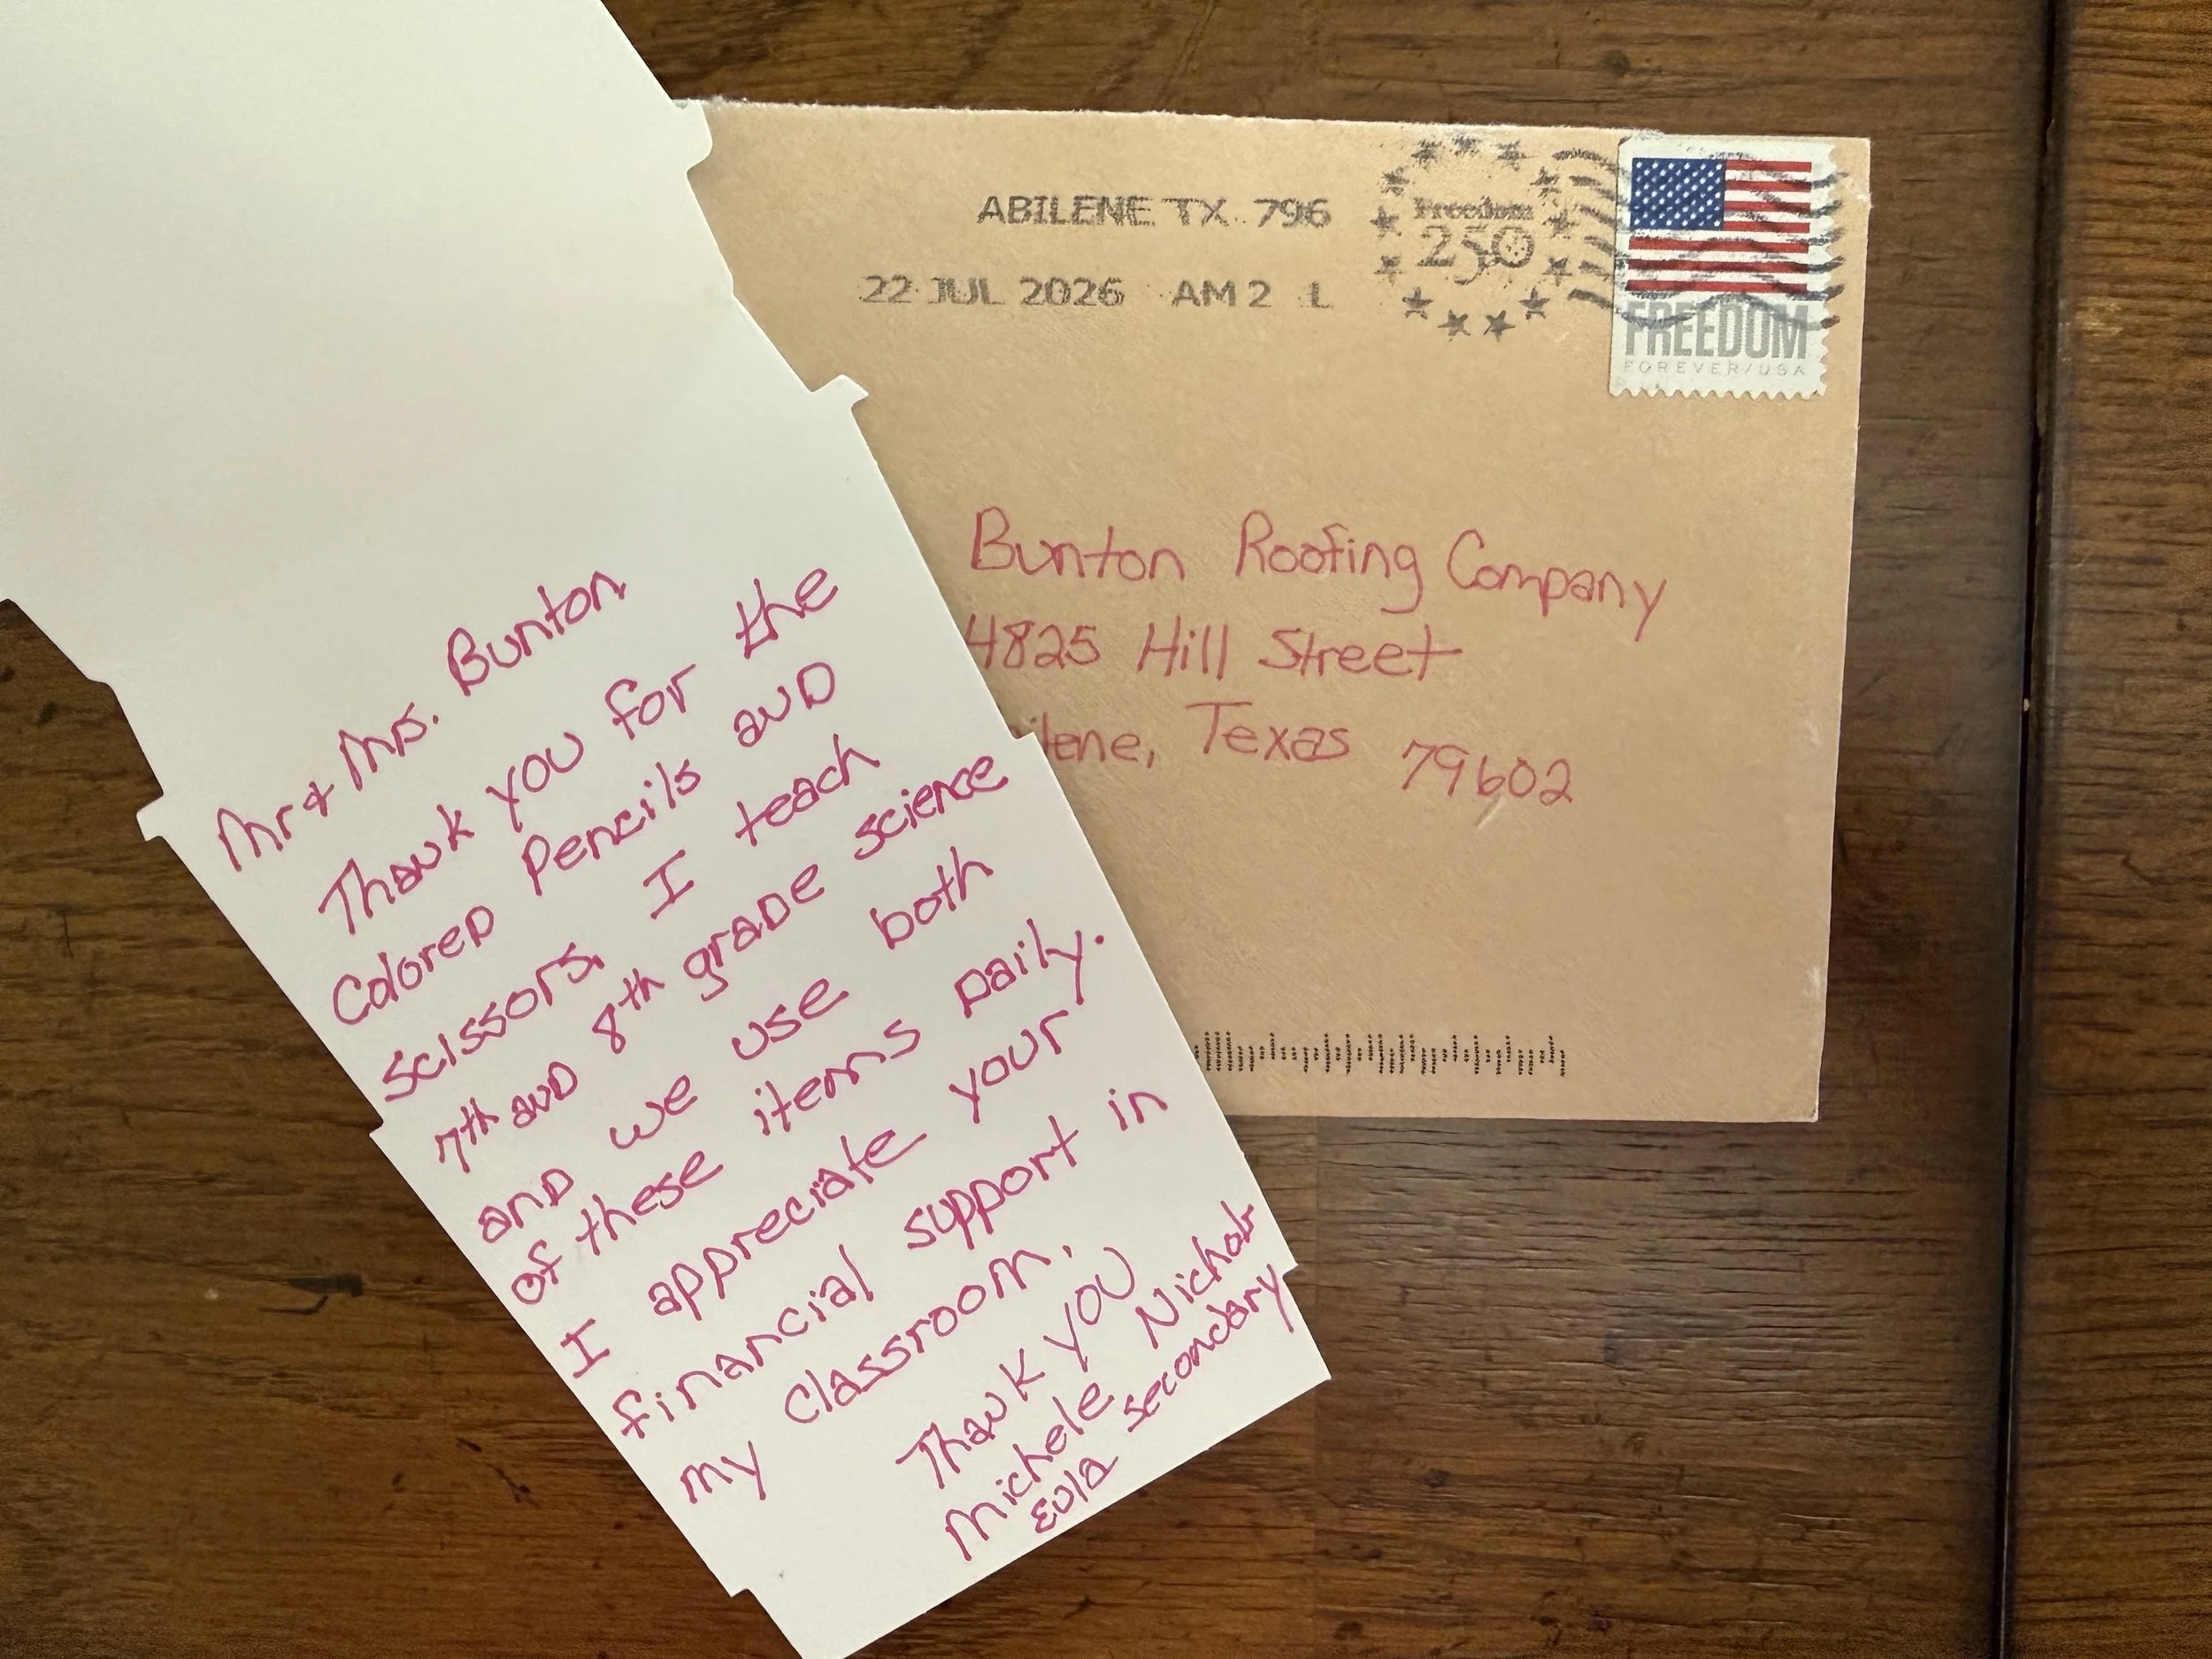 Mr & Mrs. Bunton
Thank you for the
Colored Pencils and
scissors. I teach
7th and 8th grade science
and we use both
of these items daily.
I appreciate your
financial support in
my classroom.
Thank you
Michele Nichols
Eula Secondary
ABILENE TX 796
22 JUL 2026 AM 2 L
Freedom
250
FREEDOM
FOREVER/USA
Bunton Roofing Company
4825 Hill Street
ilene, Texas 79602